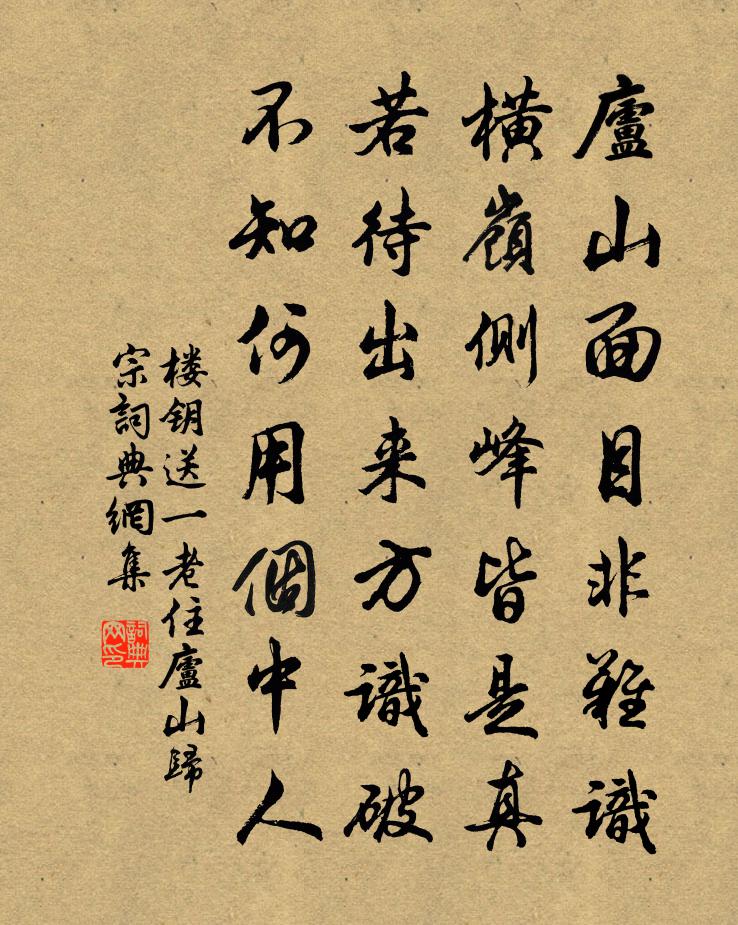 廬山面目非難識
橫嶺側峰皆是真
若待出来方識破
不知何用個中人
楼钥送一老住廬山歸
宗詞典網集
詞典網印